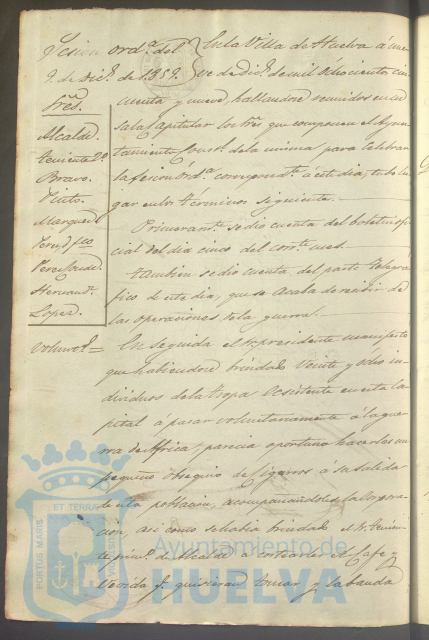 Sesion ord.ª del
9. de Dic.e de 1859.
Sres.
Alcalde.
Teniente 2º
Bravo.
Pinto.
Marquez
Perez d. fco
Hernand.z
Lopez.
En la Villa de Huelva á nue
ve de Dic.e de mil ochocientos cin
cuenta y nueve hallandose reunidos en su
sala Capitular los Sres que componen el Ayun
tamiento Const.l de la misma para celebrar
la sesion órd.ª correspond.te á este dia, tubo lu
gar en los términos siguiente.
Primeram.te se dio cuenta del boletin ofi
cial del dia cinco del corr.te mes.
Tambien se dio cuenta del parte telegra
fico de este dia, que se acaba de recibir de
las operaciones de la guerra.
Volunt.s =
En seguida el Sr presidente manifestó
que habiendose brindado veinte y ocho in
dividuos de la tropa ecsistente en esta Ca
pital á pasar voluntariamente á la guer
ra de Africa, parecia oportuno hacerles un
pequeño obsequio de Cigarros á su salida
de esta poblacion, acompañandoles la Corpora
cion, asi como se habia brindado el Sr. Tenien
te prim.o de Alcalde á costearles el Cafe y
bevida q.e quisieran tomar, y la banda
PORTUS MARIS ET TERRAE
Ayuntamiento de
HUELVA